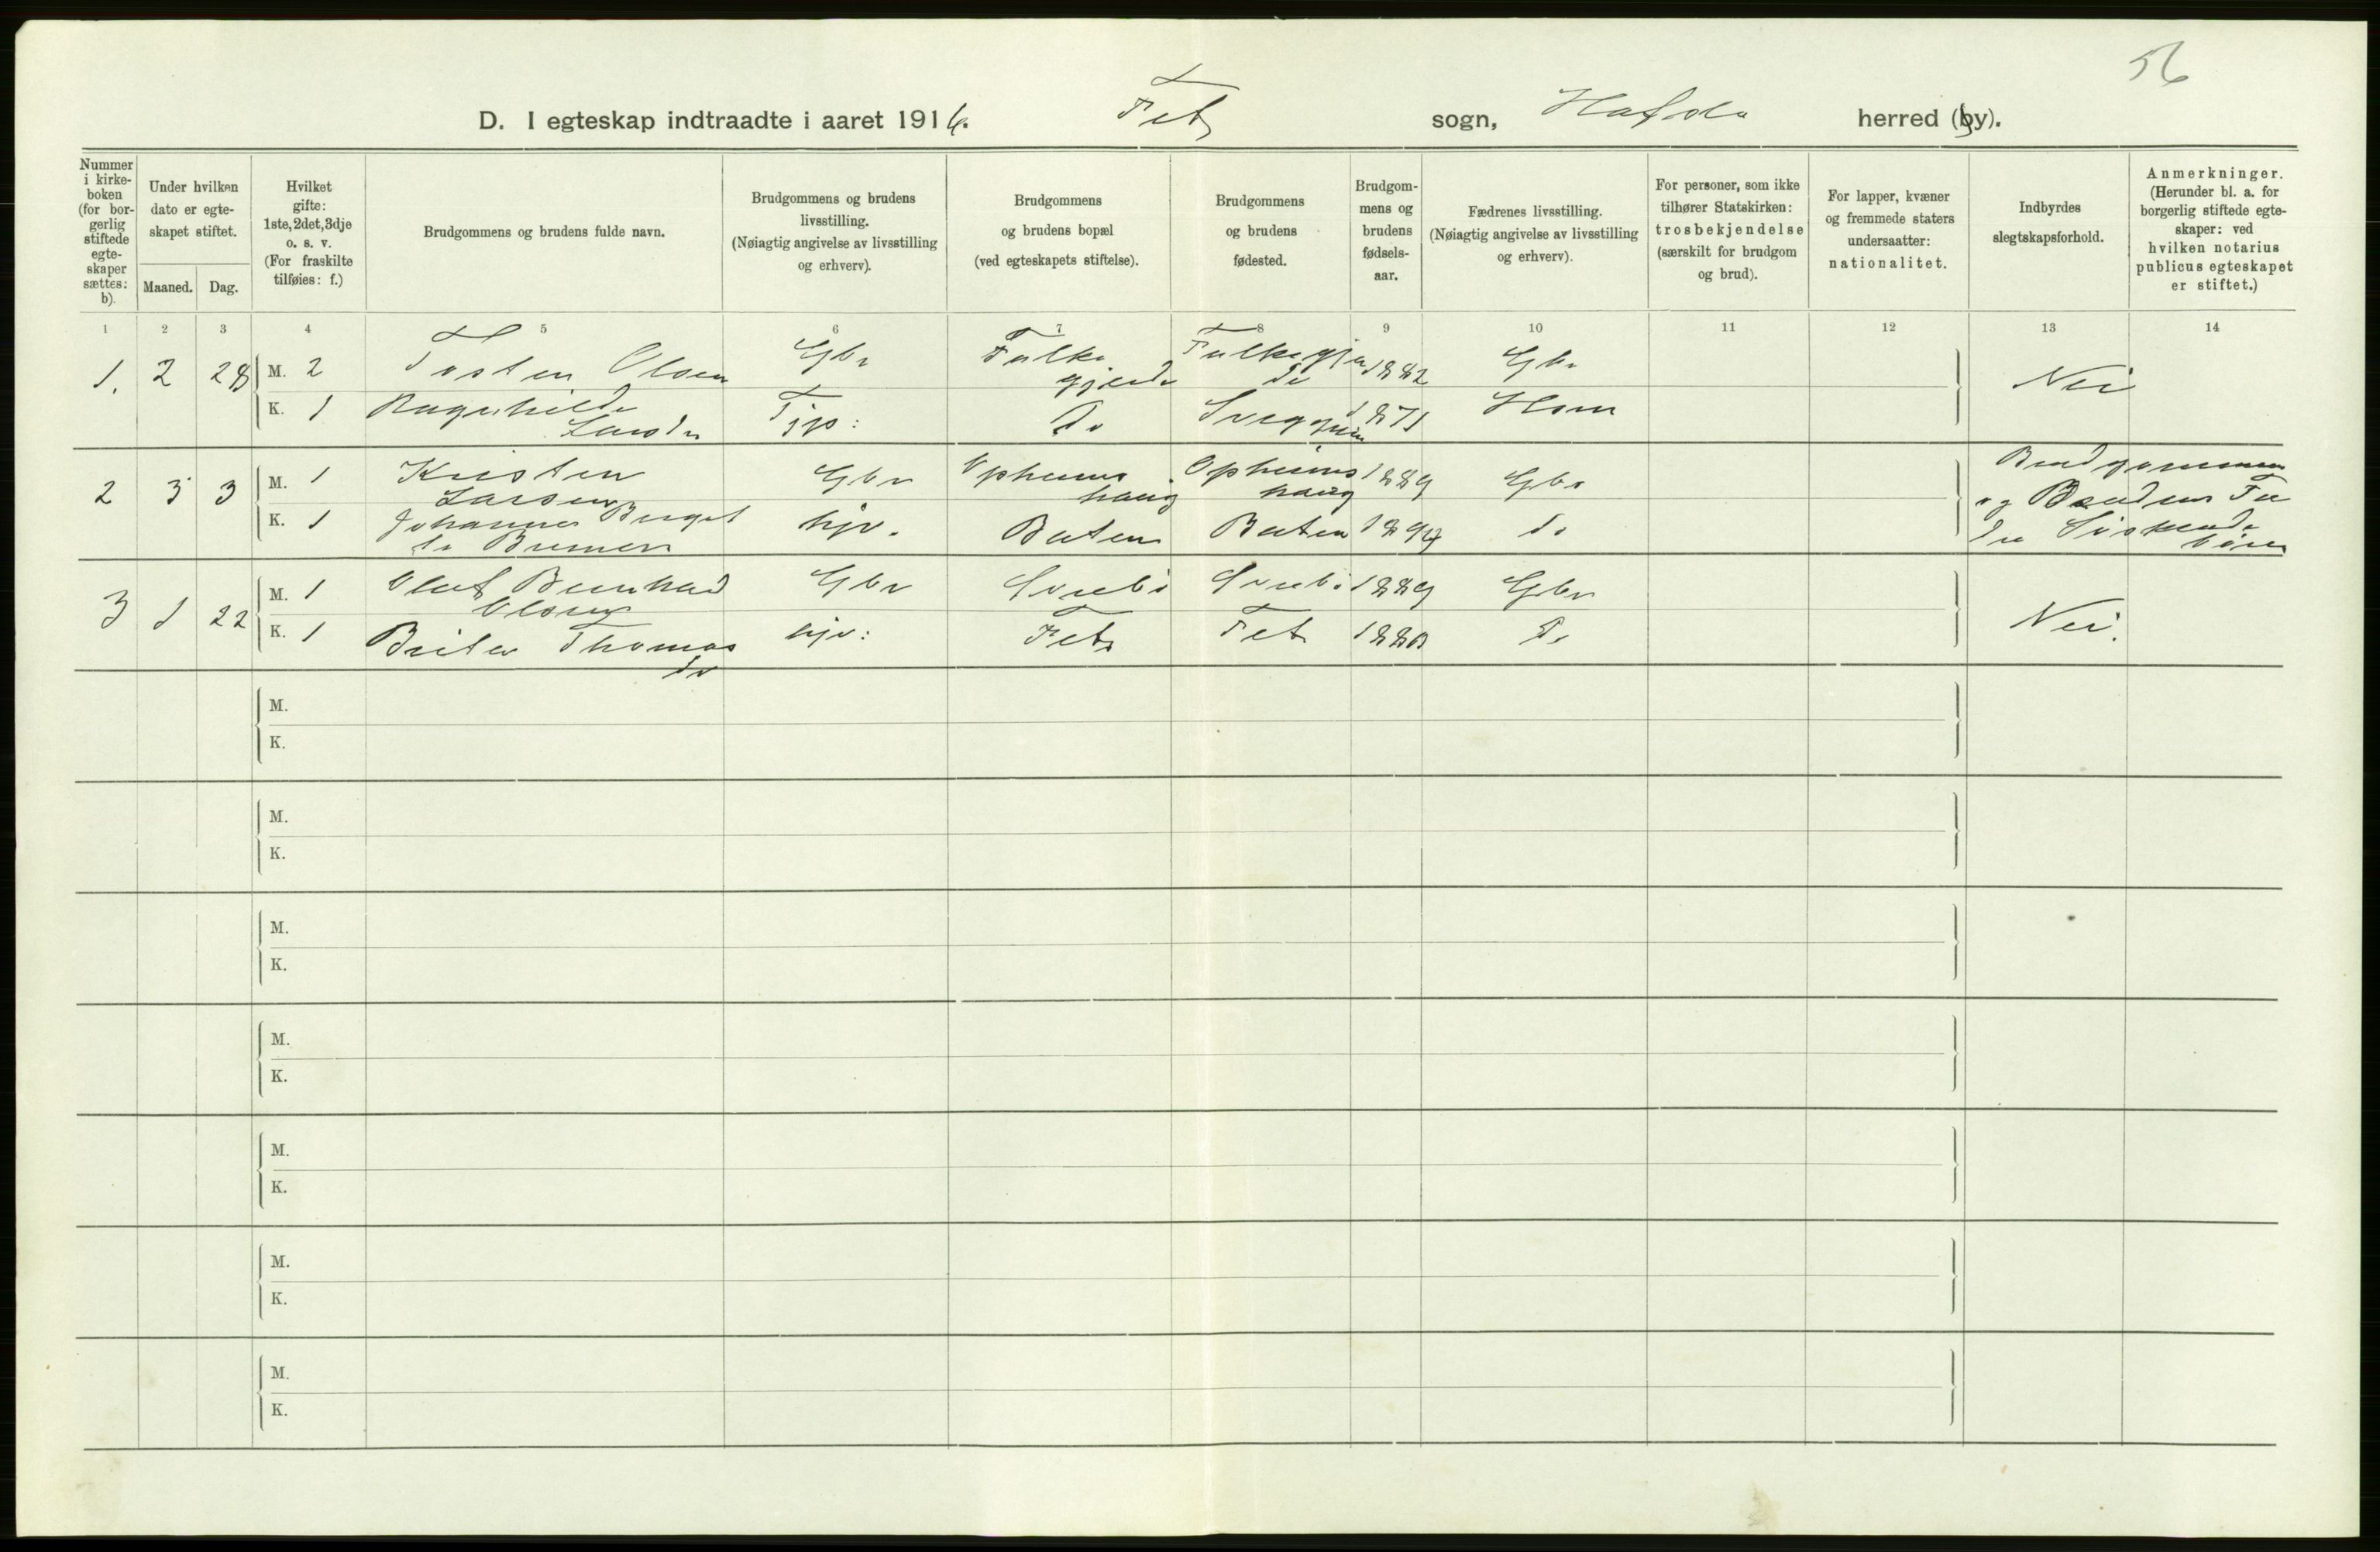 56
D. I egteskap indtraadte i aaret 1916. Fet sogn, Hafslo herred (by).
Nummer i kirke-boken (for bor-gerlig stiftede egte-skaper sættes: b).
Under hvilken dato er egte-skapet stiftet.
Maaned. Dag.
Hvilket gifte: 1ste, 2det, 3dje o. s. v. (For fraskilte tilføies: f.)
Brudgommens og brudens fulde navn.
Brudgommens og brudens livsstilling. (Nøiagtig angivelse av livsstilling og erhverv).
Brudgommens og brudens bopæl (ved egteskapets stiftelse).
Brudgommens og brudens fødested.
Brudgom-mens og brudens fødsels-aar.
Fædrenes livsstilling. (Nøiagtig angivelse av livsstilling og erhverv).
For personer, som ikke tilhører Statskirken: trosbekjendelse (særskilt for brudgom og brud).
For lapper, kvæner og fremmede staters undersaatter: nationalitet.
Indbyrdes slegtskapsforhold.
Anmerkninger. (Herunder bl. a. for borgerlig stiftede egte-skaper: ved hvilken notarius publicus egteskapet er stiftet.)
1 2 3 4 5 6 7 8 9 10 11 12 13 14
1. 2 28 M. 2 Tosten Olsen Gbr Falkegjerde Falkegjerde 1882 Gbr Nei
K. 1 Ragnhilde Larsdr Tjp: Do 1871 Hsm
2 3 3 M. 1 Kristen Larsen Gbr Opheimshaug Opheimshaug 1889 Gbr Brudgommens og Brudens Fædre Søskendebørn
K. 1 Johanne Berget Bremer hjv. Baten Baten 1894 Do
3 1 22 M. 1 Olaf Bernhard Olsen Gbr 1889 Gbr Nei.
K. 1 Brita Thomasdr hjv: Fet Fet 1880 Do
M.
K.
M.
K.
M.
K.
M.
K.
M.
K.
M.
K.
M.
K.